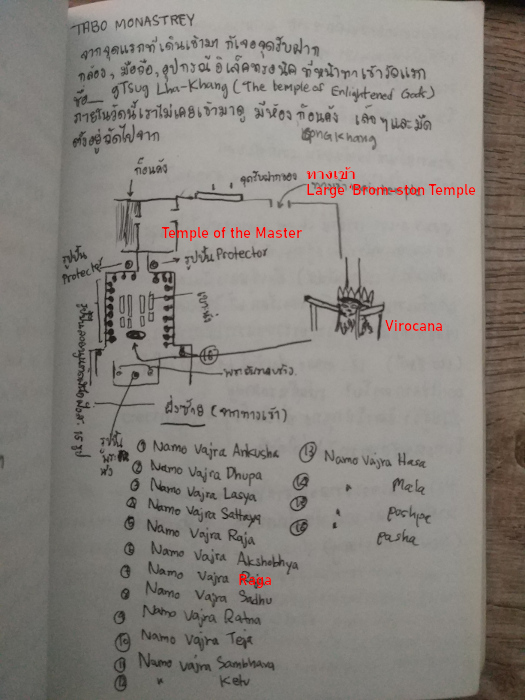 TABO MONASTREY
จากจุดแรกที่เดินเข้ามา ก็เจอจุดรับฝาก
กล้อง, มือถือ, อุปกรณ์อิเล็คทรอนิค ที่หน้าทางเข้า
ชื่อ gTsug Lha-Khang (The temple of Enlightened Gods)
ภายในวัดนี้เราไม่เคยเข้ามาดู มีห้อง ก๊อนคัง เล็กๆและมืด
ตั้งอยู่ถัดไปจาก
Gongkhang
ก๊อนคัง
จุดรับฝากของ
ทางเข้า
Large Brom-ston Temple
Temple of the Master
รูปปั้น Protector
รูปปั้น Protector
Virocana
16
ฝั่งซ้าย (จากทางเข้า)
รูปปั้น
① Namo Vajra Ankusha
② Namo Vajra Dhupa
③ Namo Vajra Lasya
④ Namo Vajra Sattaya
⑤ Namo Vajra Raja
⑥ Namo Vajra Akshobhya
⑦ Namo Vajra Raga
⑧ Namo Vajra Sadhu
⑨ Namo Vajra Ratna
⑩ Namo Vajra Teja
⑪ Namo Vajra Sambhava
⑫ " Ketu
⑬ Namo Vajra Hasa
⑭ " Mala
⑮ " poshpe
⑯ " pasha